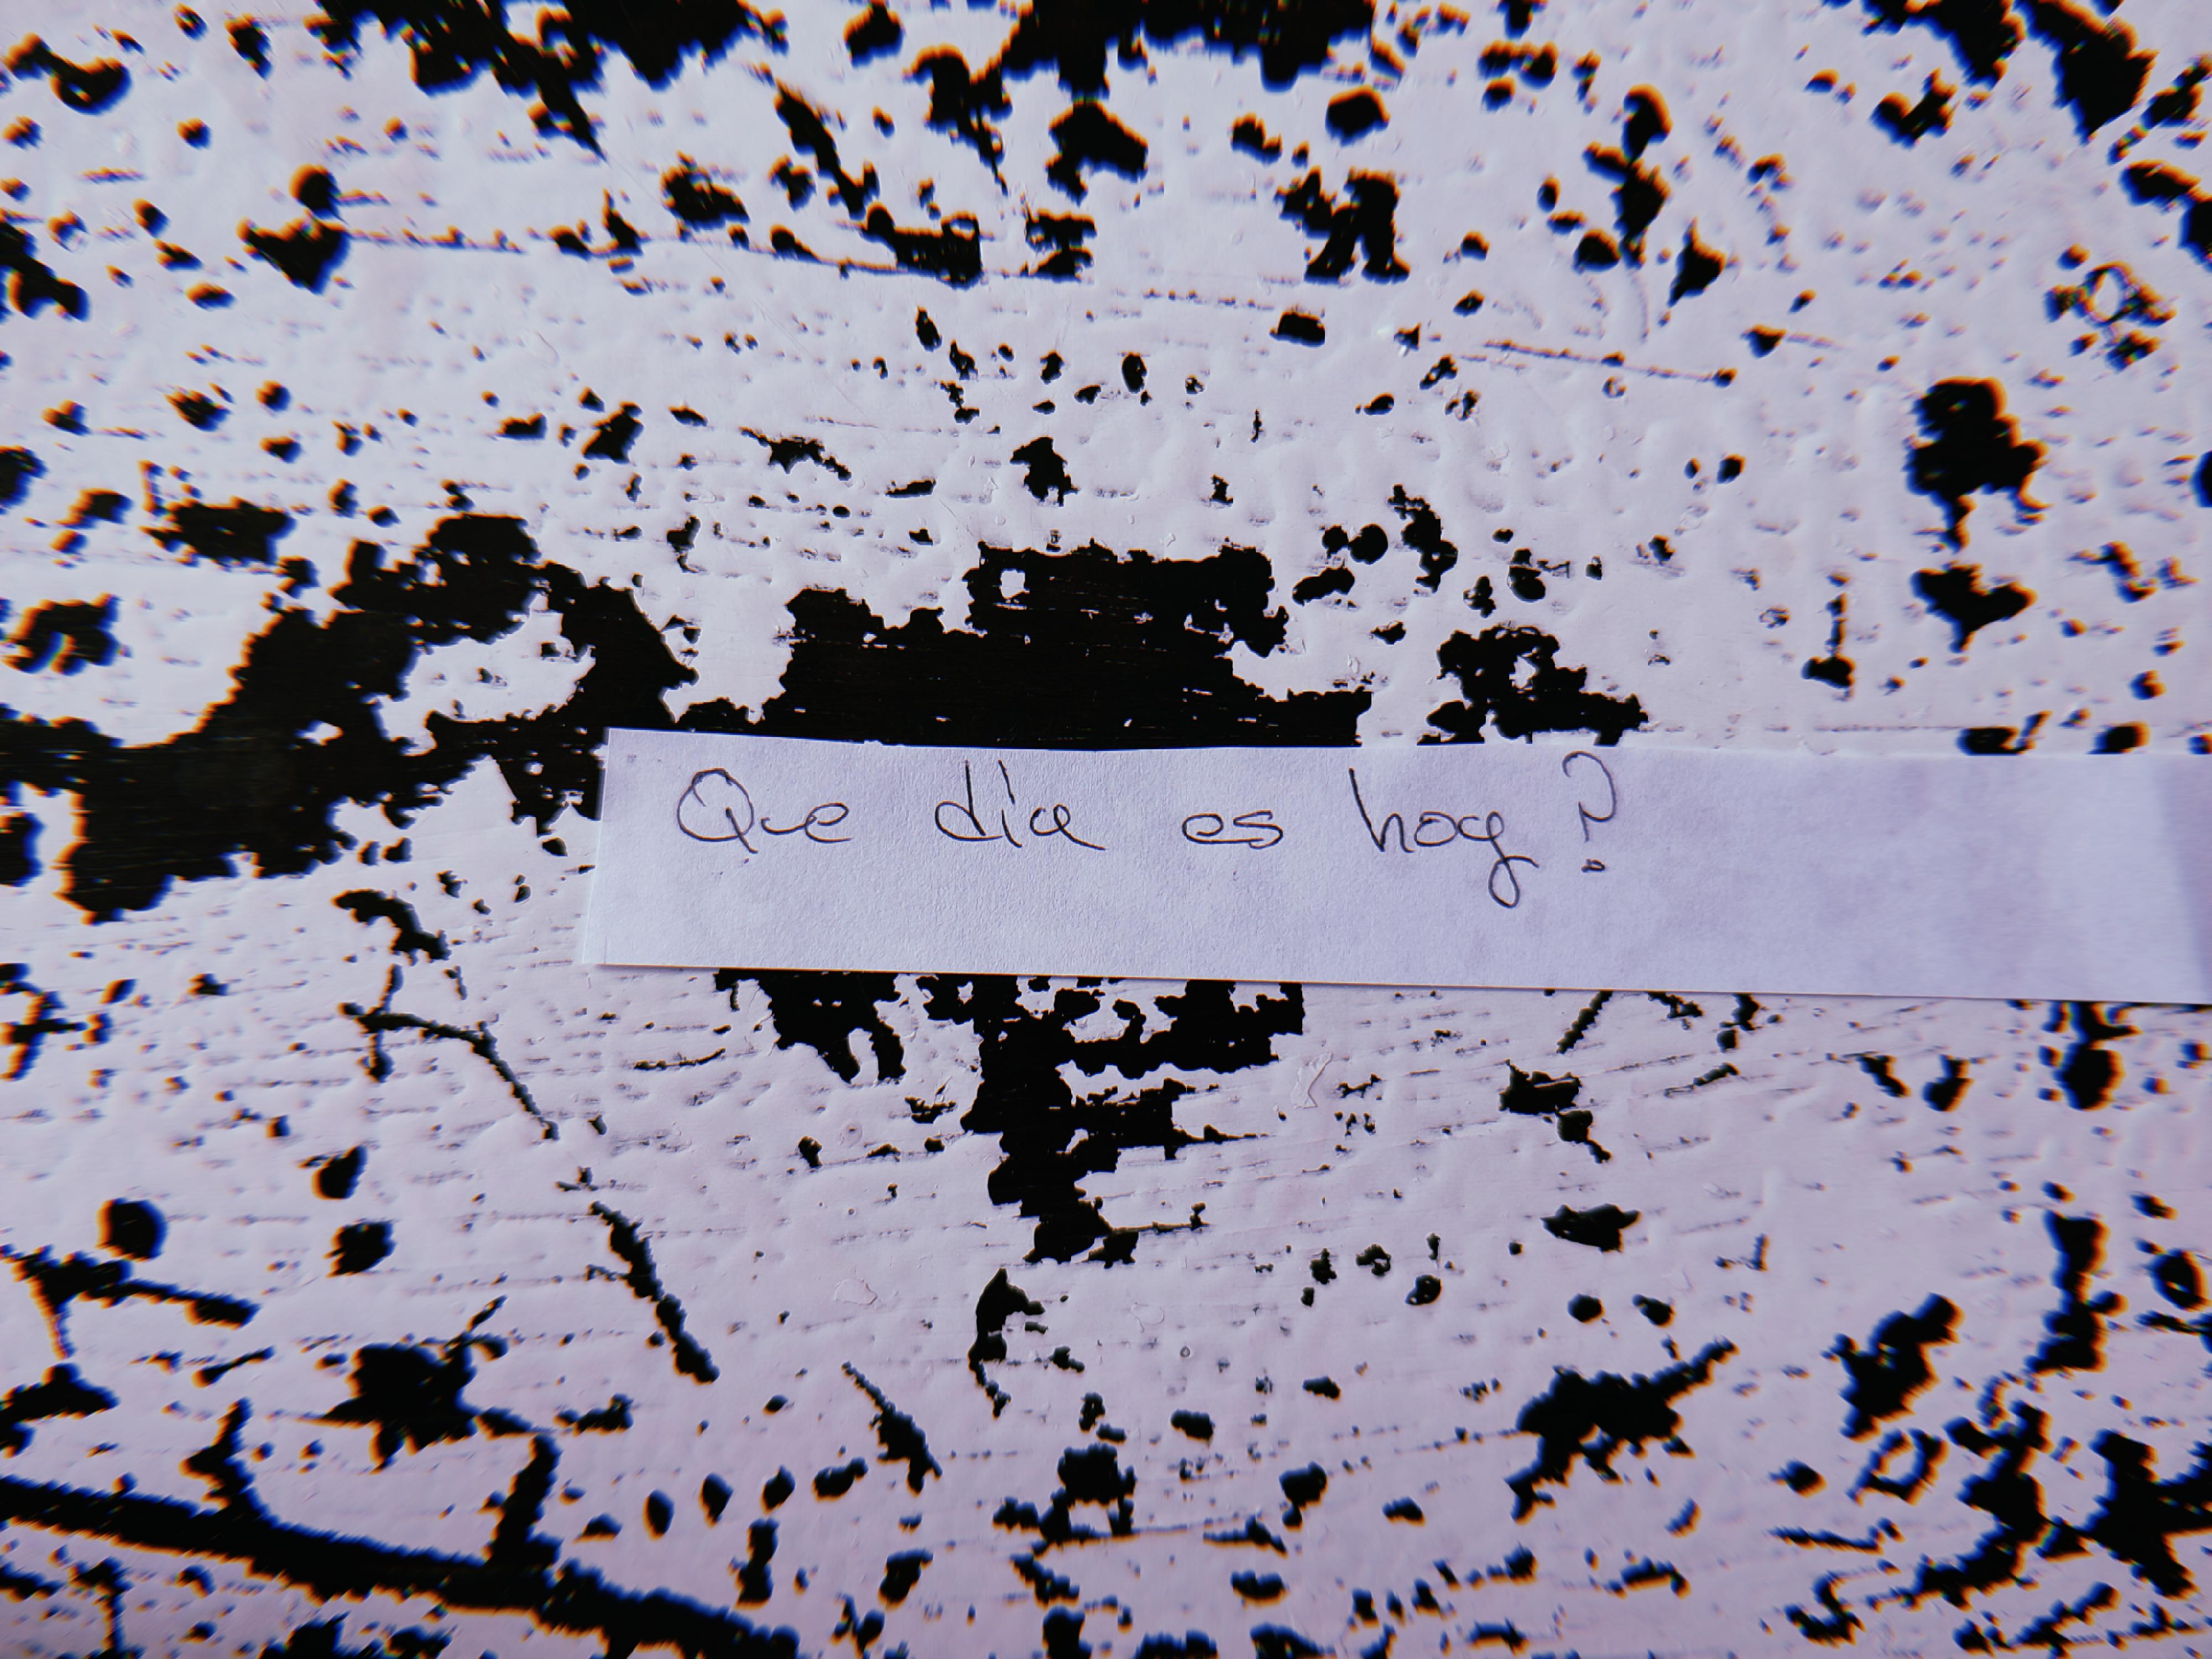 Que día es hoy?